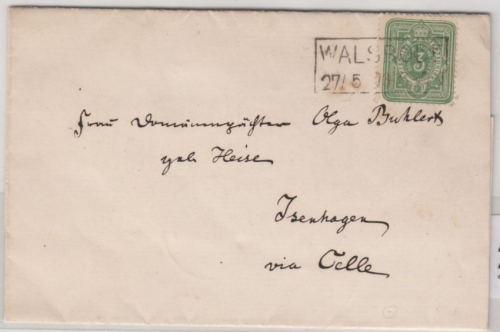 WALSRODE
27/ 5
3
Frau Domänenpächter Olga Buhlert
geb Heise
Isenhagen
via Celle